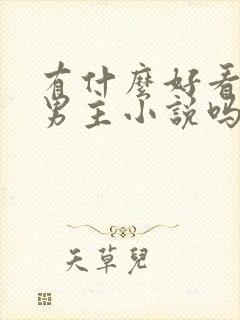 有什麼好看
男主小說嗎
天草兒